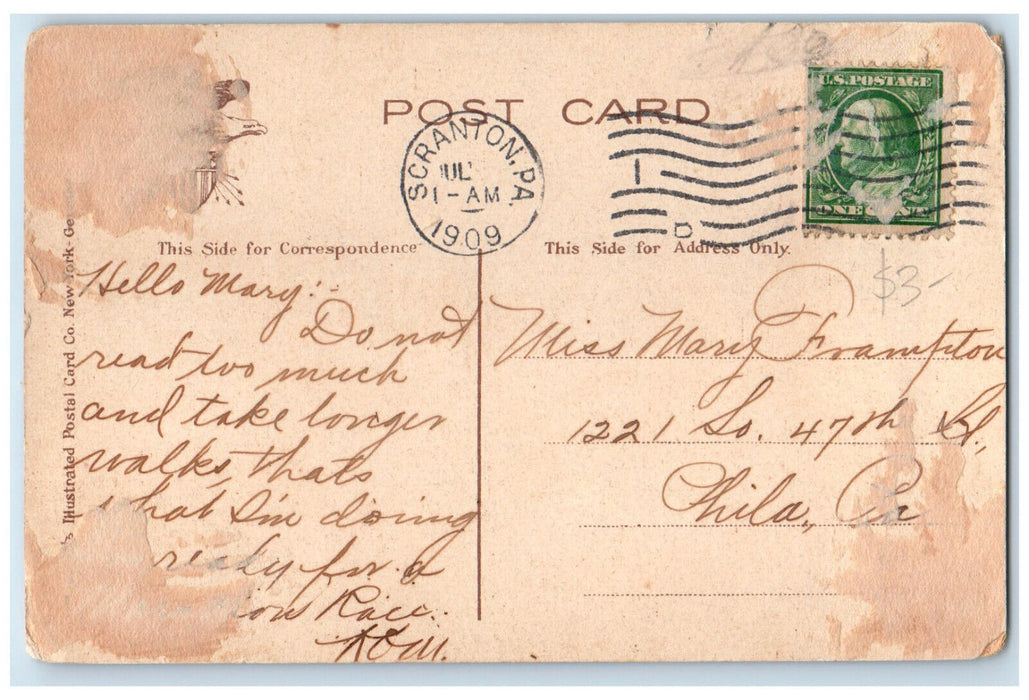 POST CARD
U.S. POSTAGE
ONE CENT
SCRANTON, PA.
JUL
1-AM
1909
1
D
$3-
This Side for Correspondence
This Side for Address Only.
Illustrated Postal Card Co. New York-Ge
Hello Mary:-
Do not
read too much
and take longer
walks, thats
what I'm doing
ready for a
Race.
Miss Mary Frampton
1221 So. 47th St,
Phila., Pa